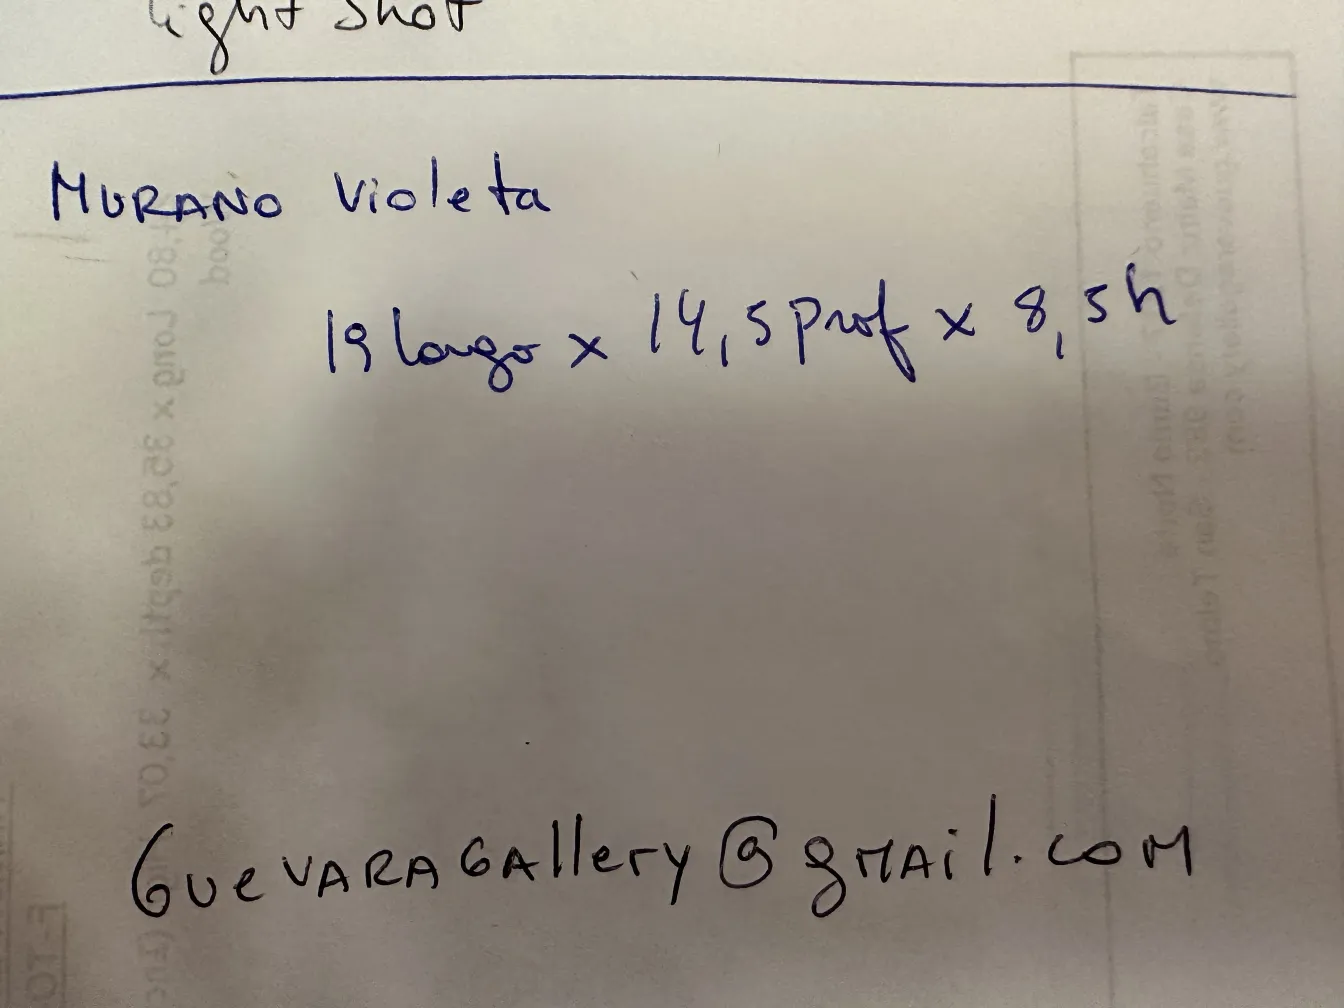 light shot
MURANO Violeta
19 largo x 14,5 prof x 8,5h
GueVARAGAllery@gmAil.com